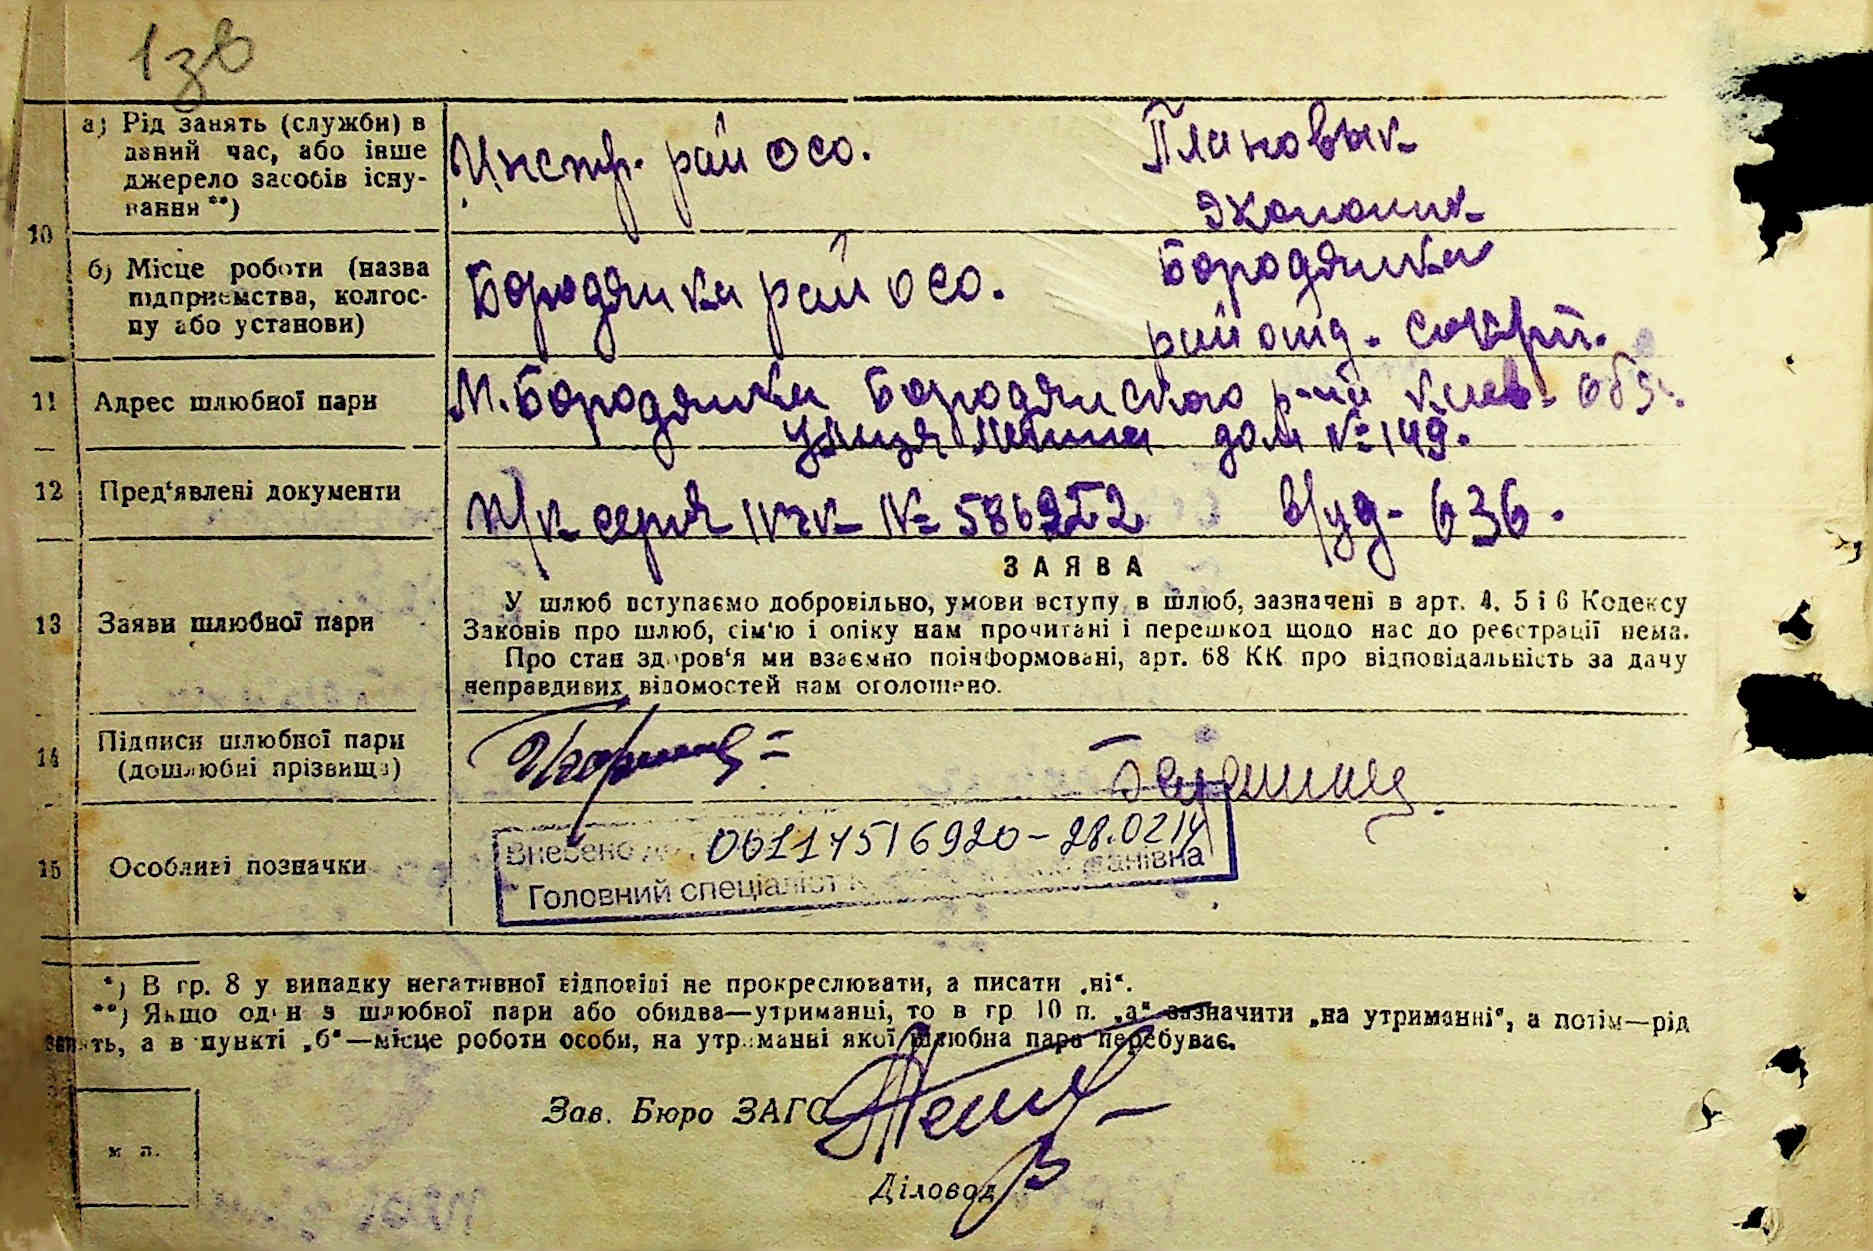 13в
а) Рід занять (служби) в даний час, або інше джерело засобів існування **)
Инстр. рай осо.
Плановык Экономик
10
б) Місце роботи (назва підприємства, колгоспу або установи)
Бородянка рай осо.
Бородянка рай отд.
11 Адрес шлюбної пари
М. Бородянка Бородянского р-на Киев. обл.
улиця Ленина дом № 149.
12 Пред'явлені документи
п/к серия № 586952 в/уд- 636.
ЗАЯВА
13 Заяви шлюбної пари
У шлюб вступаємо добровільно, умови вступу в шлюб, зазначені в арт. 4, 5 і 6 Кодексу
Законів про шлюб, сім'ю і опіку нам прочитані і перешкод щодо нас до реєстрації нема.
Про стан здоров'я ми взаємно поінформовані, арт. 68 КК про відповідальність за дачу
неправдивих відомостей нам оголошено.
14 Підписи шлюбної пари
(дошлюбні прізвища)
15 Особливі позначки
Внесено 00117516920 - 28.02.14
Головний спеціаліст
*) В гр. 8 у випадку негативної відповіді не прокреслювати, а писати „ні“.
**) Якщо один з шлюбної пари або обидва—утриманці, то в гр 10 п. „а“ зазначити „на утриманні“, а потім—рід
занять, а в пункті „б“—місце роботи особи, на утриманні якої шлюбна пара перебуває.
Зав. Бюро ЗАГС
м п.
Діловод